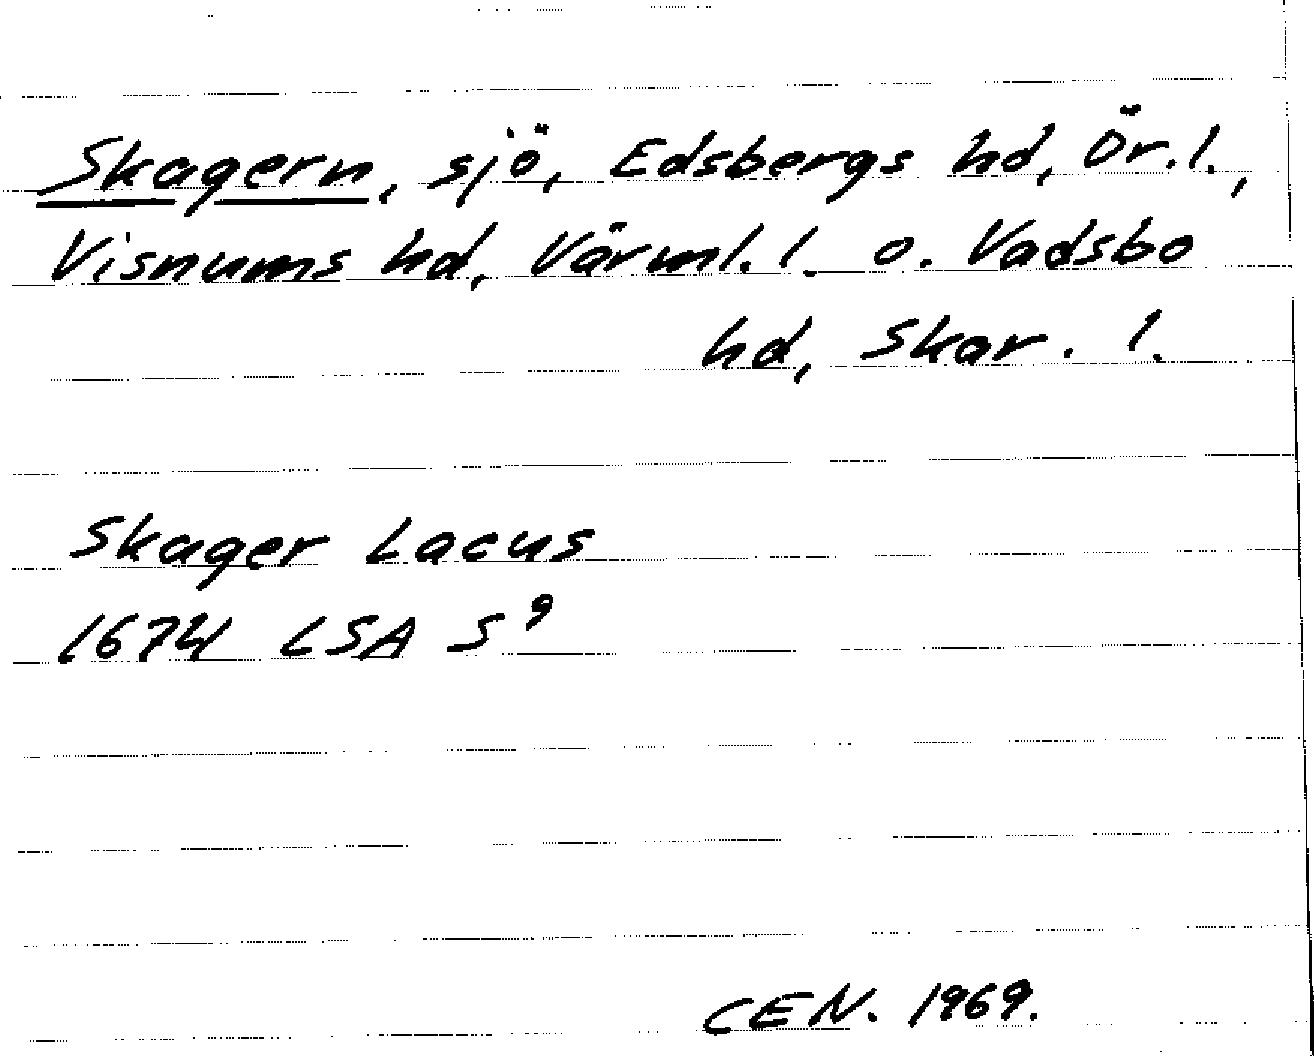 Skagern, sjö, Edsbergs hd, Ör. l.,
Visnums hd, Värml. l. o. Vadsbo
hd, Skar. l.
Skager Lacus
1674 LSA S⁹
CEN. 1969.